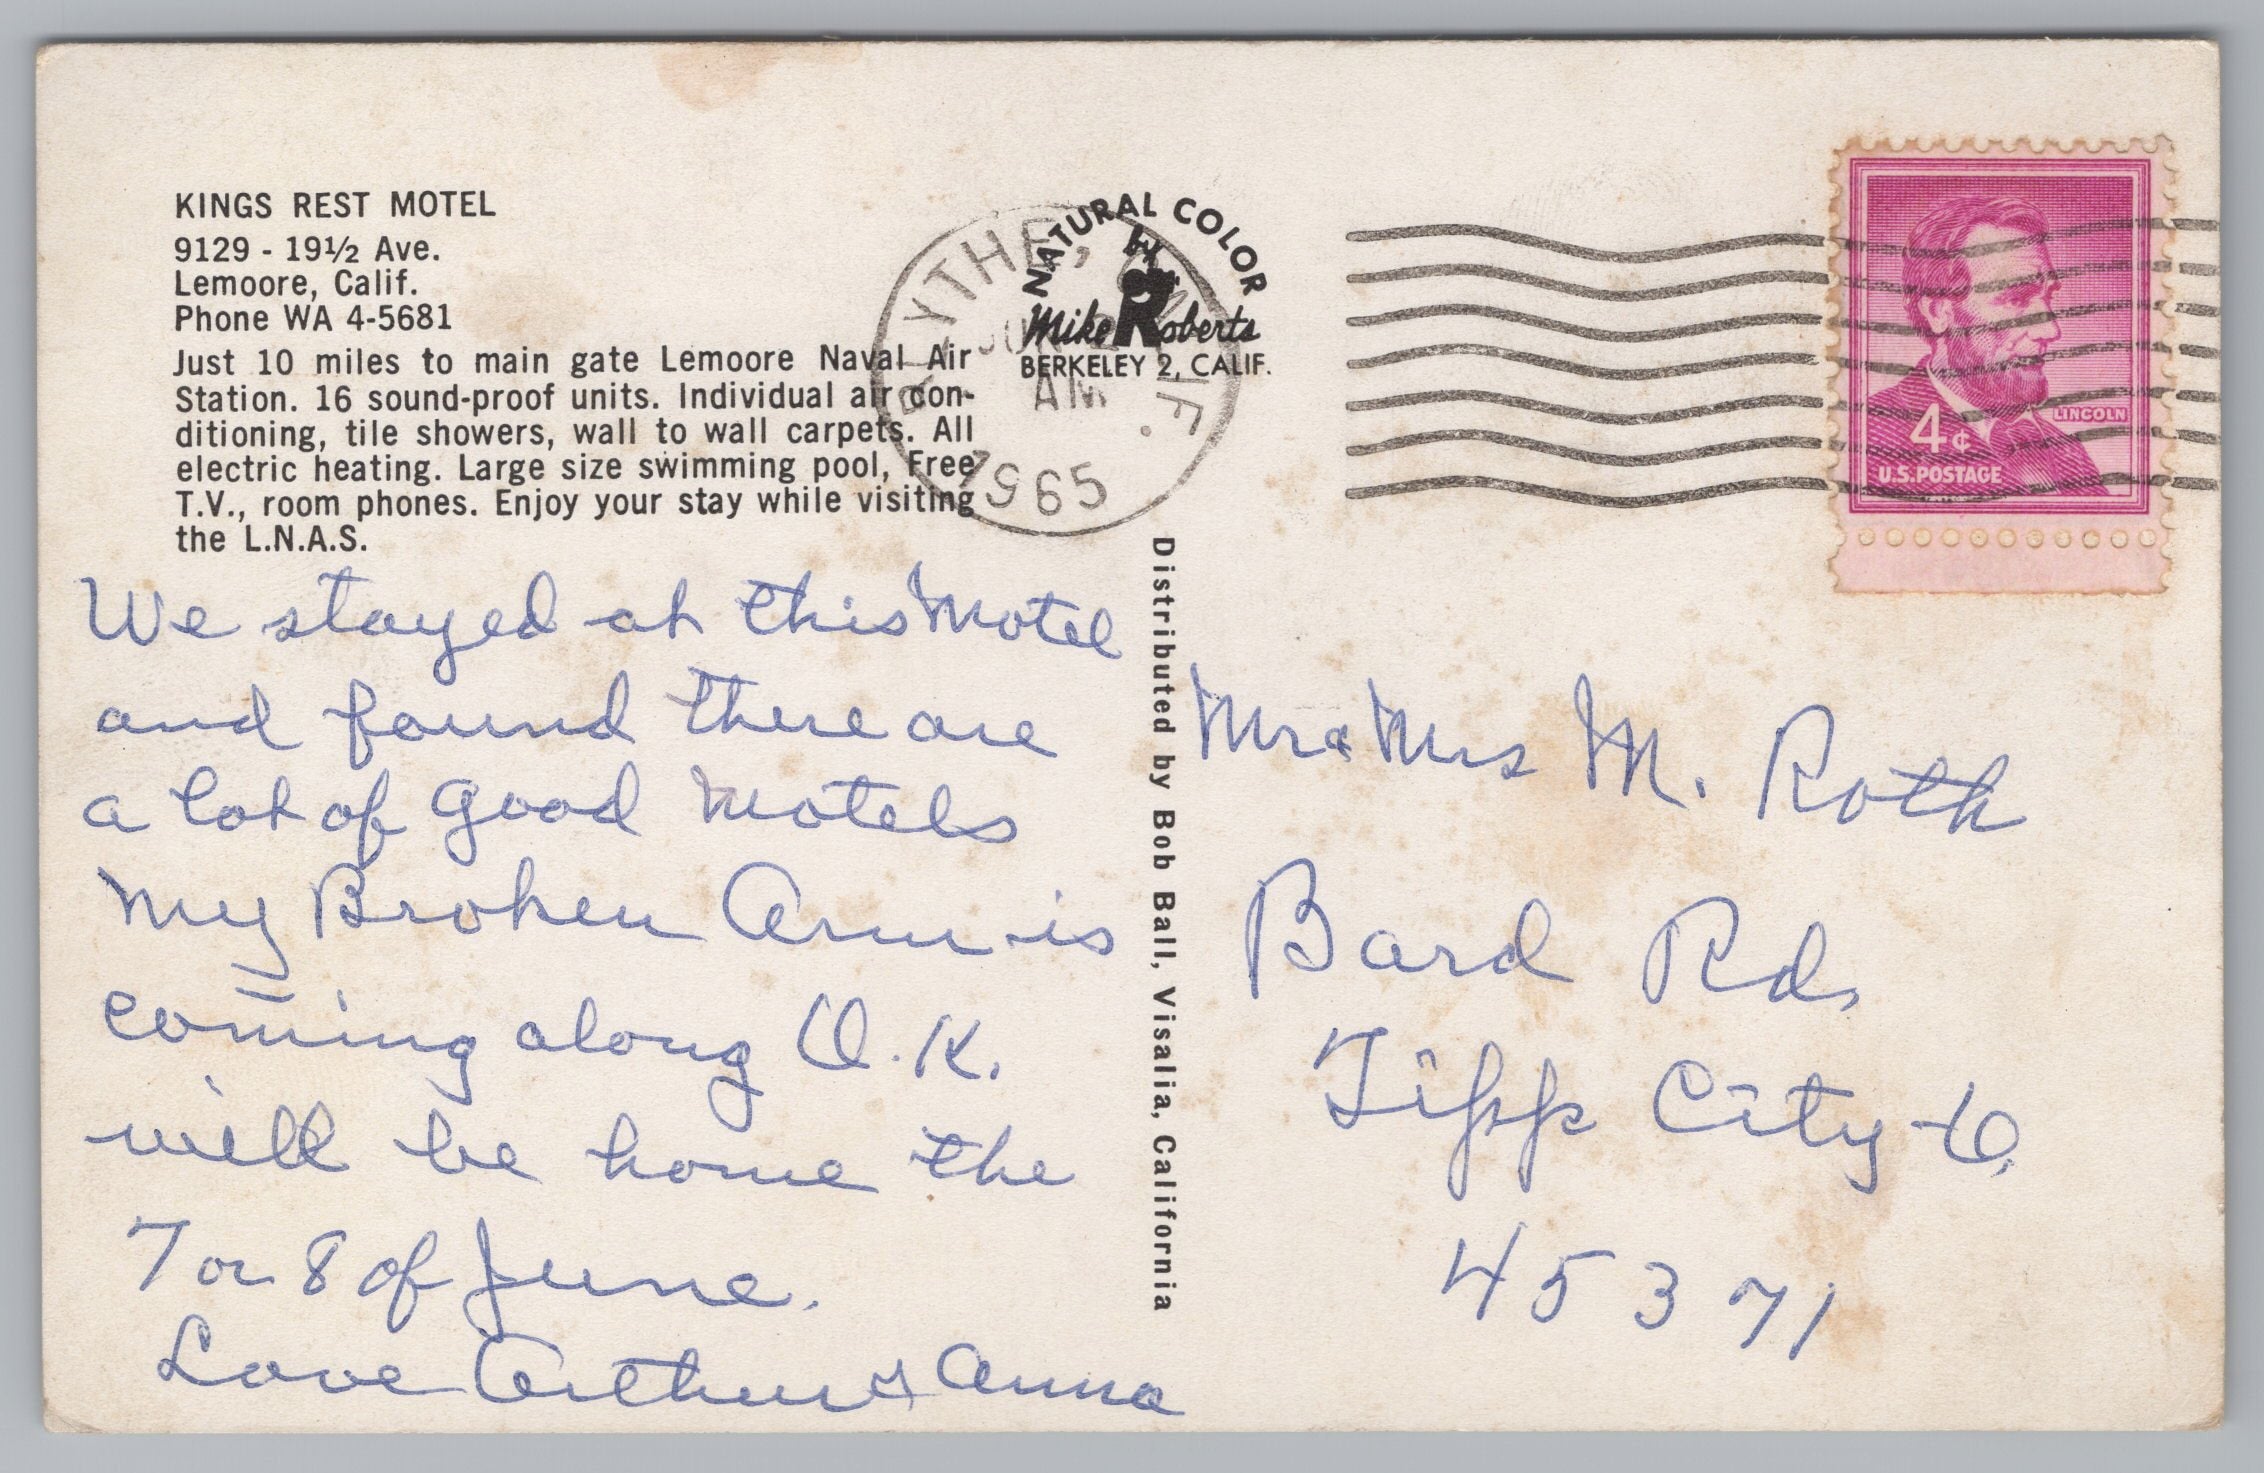 KINGS REST MOTEL
9129 - 19½ Ave.
Lemoore, Calif.
Phone WA 4-5681
Just 10 miles to main gate Lemoore Naval Air
Station. 16 sound-proof units. Individual air con-
ditioning, tile showers, wall to wall carpets. All
electric heating. Large size swimming pool, Free
T.V., room phones. Enjoy your stay while visiting
the L.N.A.S.
We stayed at this Motel
and found there are
a lot of good Motels
My Broken Arm is
coming along O.K.
will be home the
7 or 8 of June.
Love Arthur & Anna
NATURAL COLOR
by
Mike Roberts
BERKELEY 2, CALIF.
BLYTHE, CALIF.
AM
1965
Distributed by Bob Ball, Visalia, California
LINCOLN
4¢
U.S. POSTAGE
Mr & Mrs M. Roth
Bard Rd.
Tipp City O.
45371